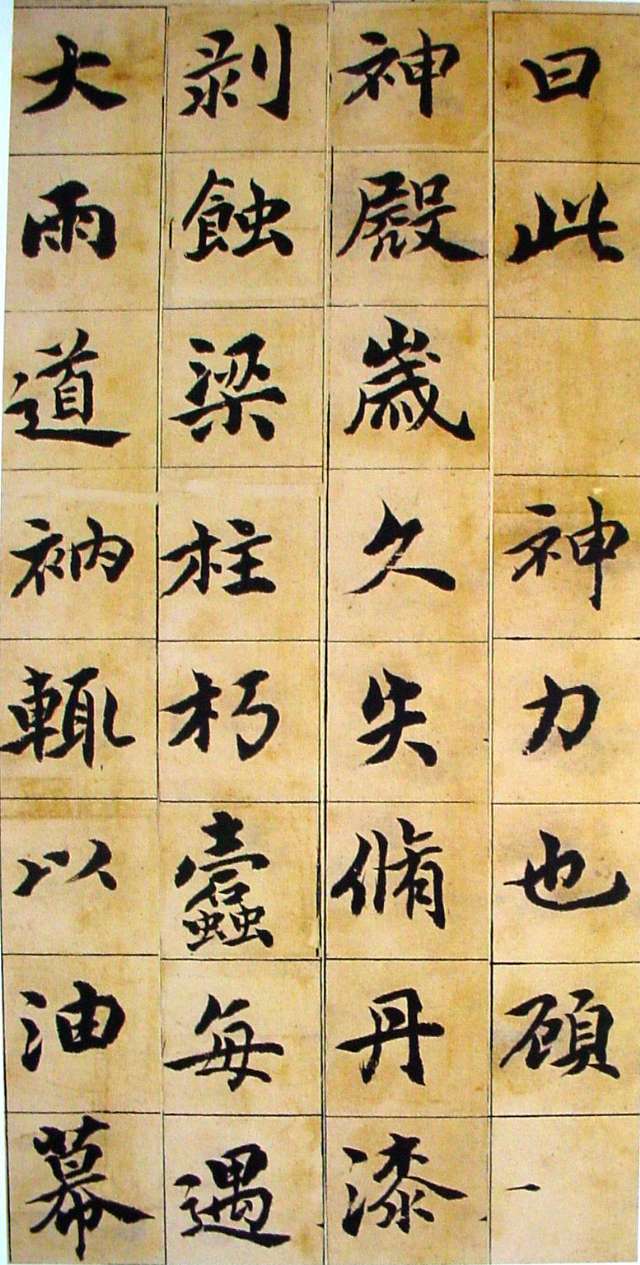 曰此 神力也頋一
神殿歲久失脩丹漆
剥蝕梁柱朽蠹每遇
大雨道衲輒以油幕